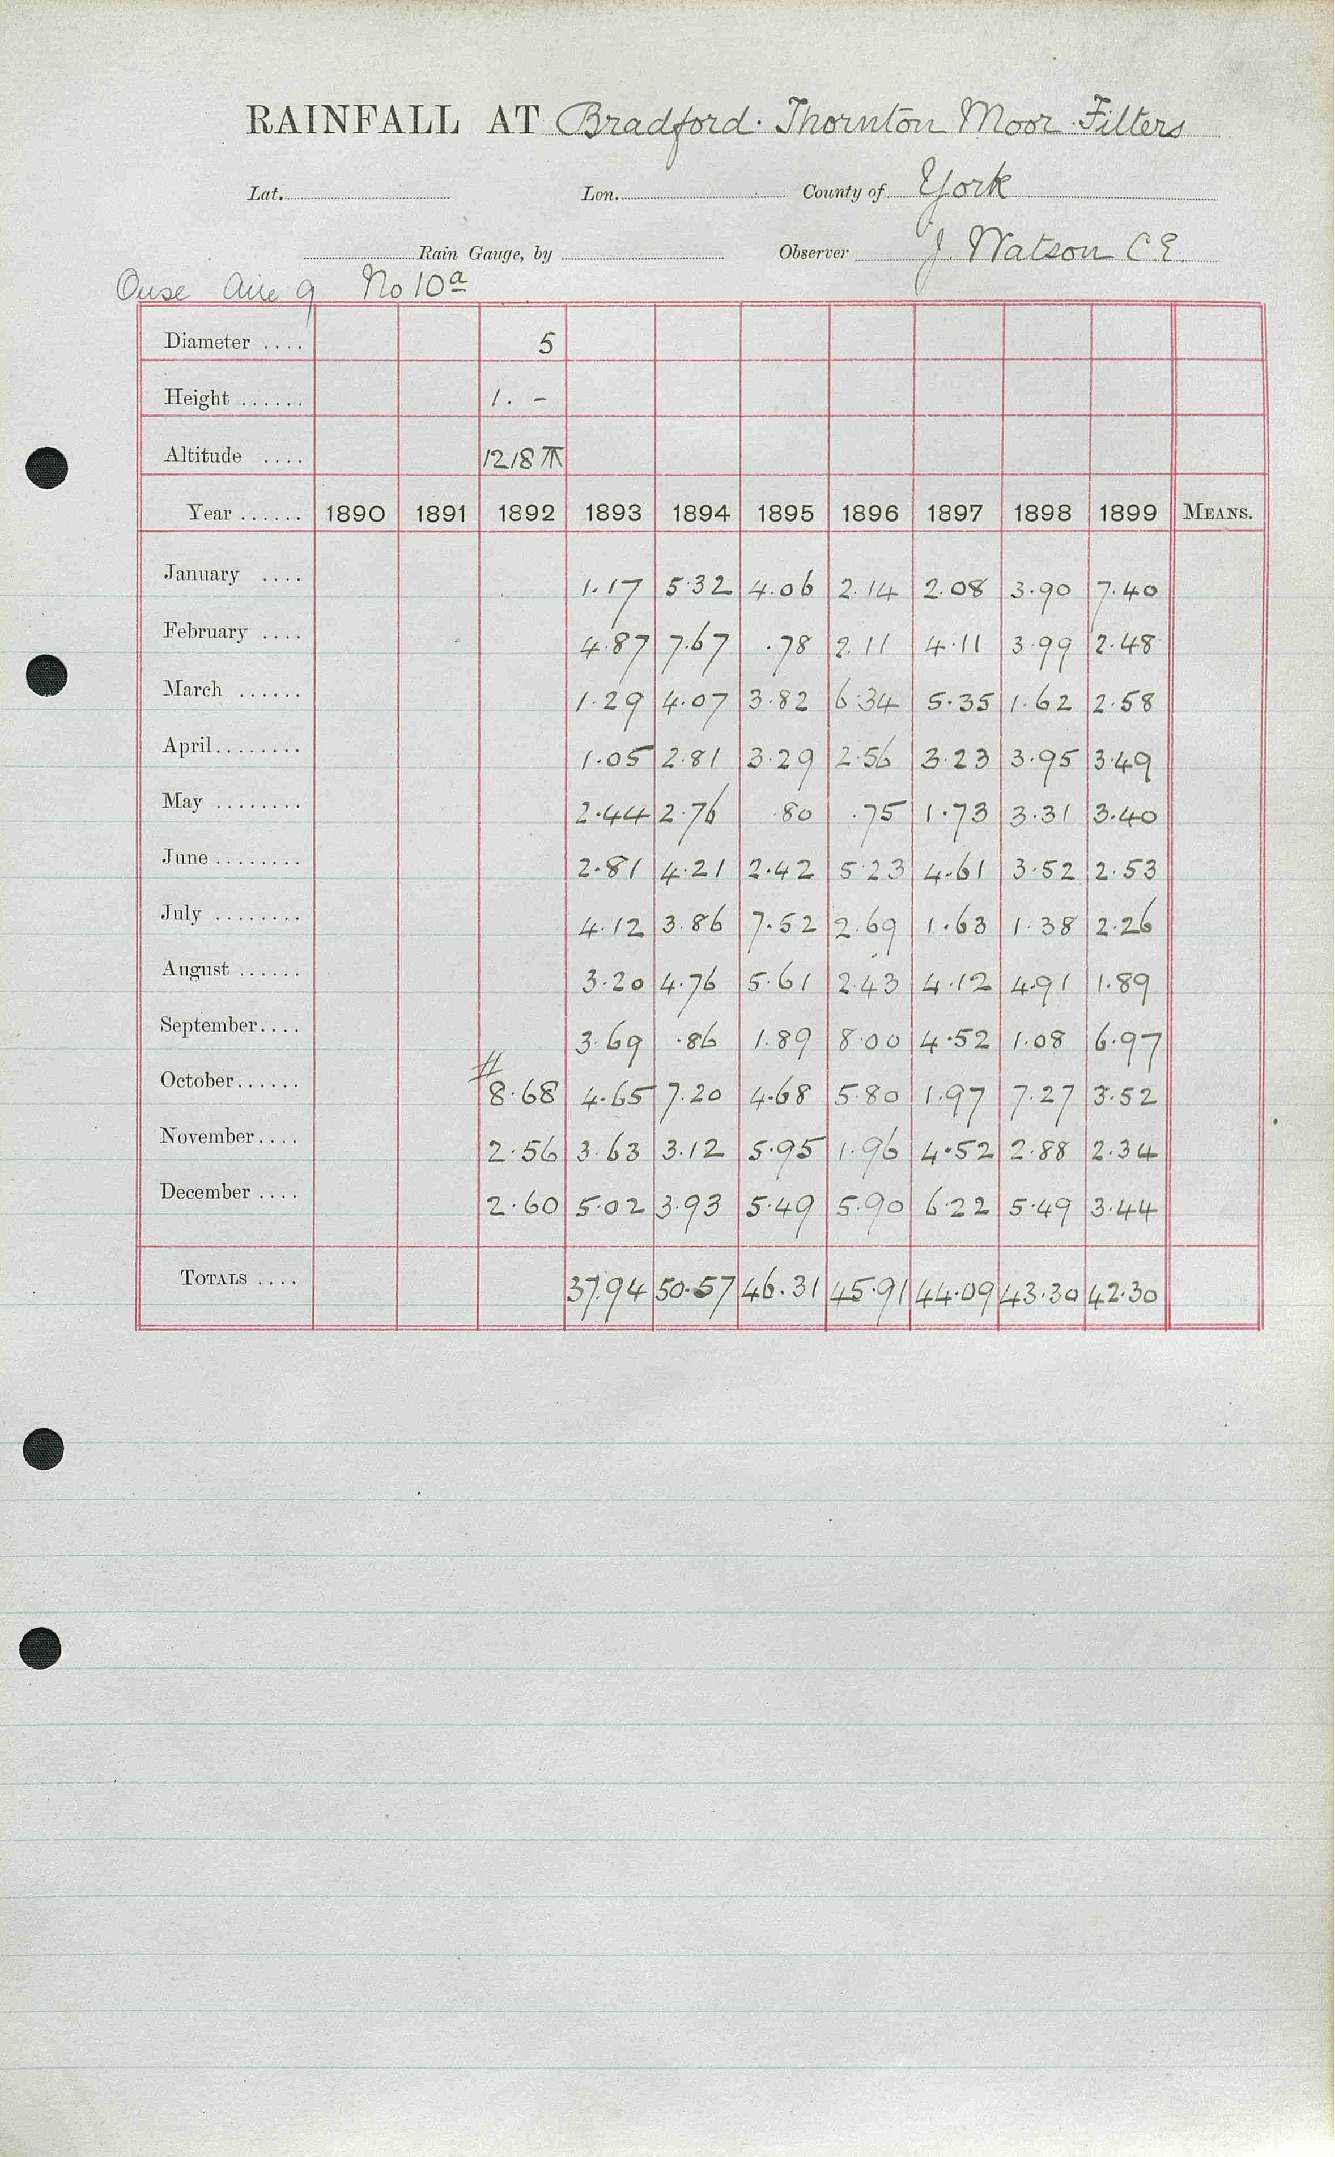 RAINFALL AT Bradford. Thornton Moor Filters
Lat. Lon. County of York
Rain Gauge, by Observer J. Watson C E
Ouse Aire 9 No 10a
Diameter .... 5
Height ...... 1. -
Altitude .... 1218
Year ...... 1890 1891 1892 1893 1894 1895 1896 1897 1898 1899 MEANS.
January .... 1.17 5.32 4.06 2.14 2.08 3.90 7.40
February .... 4.87 7.67 .78 2.11 4.11 3.99 2.48
March ...... 1.29 4.07 3.82 6.34 5.35 1.62 2.58
April........ 1.05 2.81 3.29 2.56 3.23 3.95 3.49
May ........ 2.44 2.76 .80 .75 1.73 3.31 3.40
June ........ 2.81 4.21 2.42 5.23 4.61 3.52 2.53
July ........ 4.12 3.86 7.52 2.69 1.63 1.38 2.26
August ...... 3.20 4.76 5.61 2.43 4.12 4.91 1.89
September.... 3.69 .86 1.89 8.00 4.52 1.08 6.97
October...... # 8.68 4.65 7.20 4.68 5.80 1.97 7.27 3.52
November.... 2.56 3.63 3.12 5.95 1.96 4.52 2.88 2.34
December .... 2.60 5.02 3.93 5.49 5.90 6.22 5.49 3.44
TOTALS .... 37.94 50.57 46.31 45.91 44.09 43.30 42.30